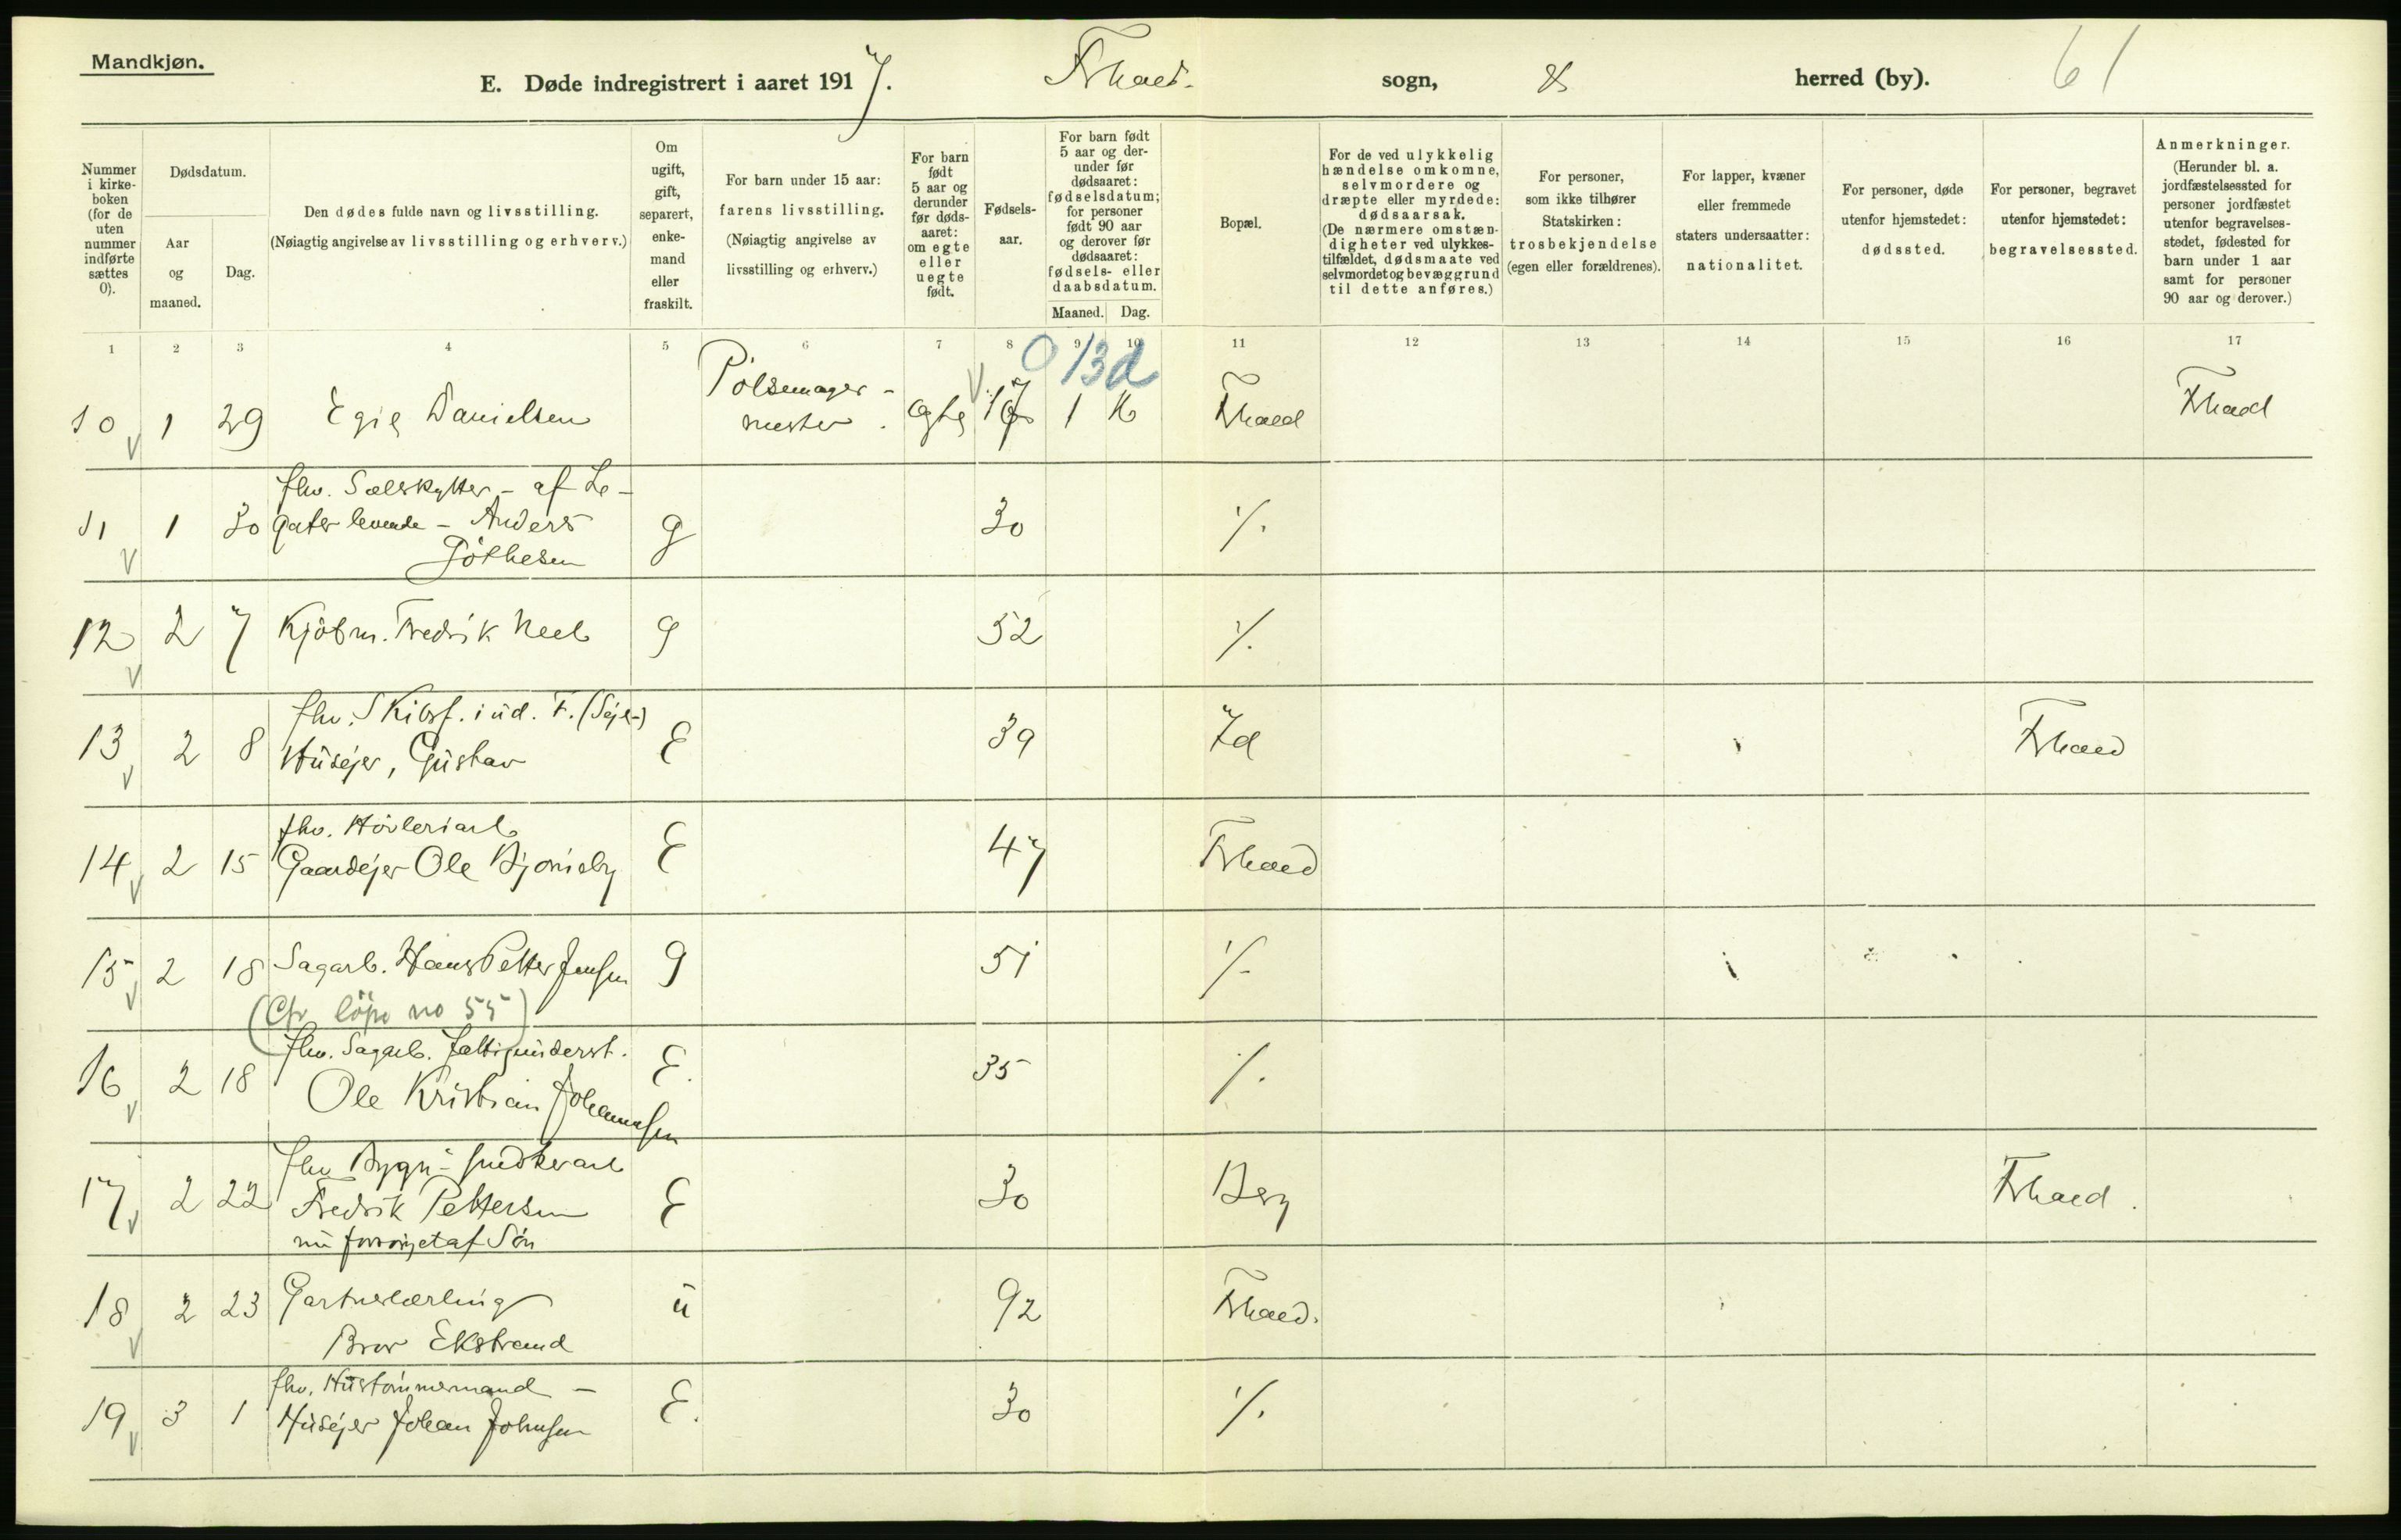 Mandkjøn.
E. Døde indregistrert i aaret 1917. Frhald. sogn, herred (by). 61
Nummer i kirke-boken (for de uten nummer indførte sættes 0).
Dødsdatum.
Aar og maaned.
Dag.
Den dødes fulde navn og livsstilling.
(Nøiagtig angivelse av livsstilling og erhverv.)
Om ugift, gift, separert, enke-mand eller fraskilt.
For barn under 15 aar:
farens livsstilling.
(Nøiagtig angivelse av
livsstilling og erhverv.)
For barn født 5 aar og derunder før døds-aaret: om egte eller uegte født.
Fødsels-aar.
For barn født 5 aar og der-under før dødsaaret: fødselsdatum; for personer født 90 aar og derover før dødsaaret: fødsels- eller daabsdatum.
Maaned. Dag.
Bopæl.
For de ved ulykkelig hændelse omkomne, selvmordere og dræpte eller myrdede: dødsaarsak.
(De nærmere omstæn-digheter ved ulykkes-tilfældet, dødsmaate ved selvmordet og bevæggrund til dette anføres.)
For personer, som ikke tilhører Statskirken: trosbekjendelse (egen eller forældrenes).
For lapper, kvæner eller fremmede staters undersaatter: nationalitet.
For personer, døde utenfor hjemstedet: dødssted.
For personer, begravet utenfor hjemstedet: begravelsessted.
Anmerkninger.
(Herunder bl. a. jordfæstelsessted for personer jordfæstet utenfor begravelses-stedet, fødested for barn under 1 aar samt for personer 90 aar og derover.)
1 2 3 4 5 6 7 8 9 10 11 12 13 14 15 16 17
0 13d
Pölsemager-
10 1 29 Egil Danielsen mester. egte 17 1 16 Frhald Frhald
fhv. Sælskytter - af Le-
11 1 30 gater levende - Anders g 30 ./.
Göthesen
12 2 7 Kjöbm. Fredrik Neeb g 52 ./.
fhv. Skibsf. i ud. F. (Sejl-)
13 2 8 Husejer, Gustav E 39 Id Frhald
fhv. Hövleriarb.
14 2 15 Gaardejer Ole Bjørneby E 47 Frhald
15 2 18 Sagarb. Hans Petter Jensen g 51 ./.
(Cfr löpe no 55)
fhv. Sagarb. Fattigunderst.
16 2 18 Ole Kristian Johannesen E. 35 ./.
fhv Bygn-snedkerarb
17 2 22 Fredrik Pettersen E 30 Berg Frhald.
nu forsörget af Sön
18 2 23 Gartnerlærling u 92 Frhald.
Bror Ekstrand
fhv. Hustömmermand -
19 3 1 Husejer Johan Johnsen E. 30 ./.